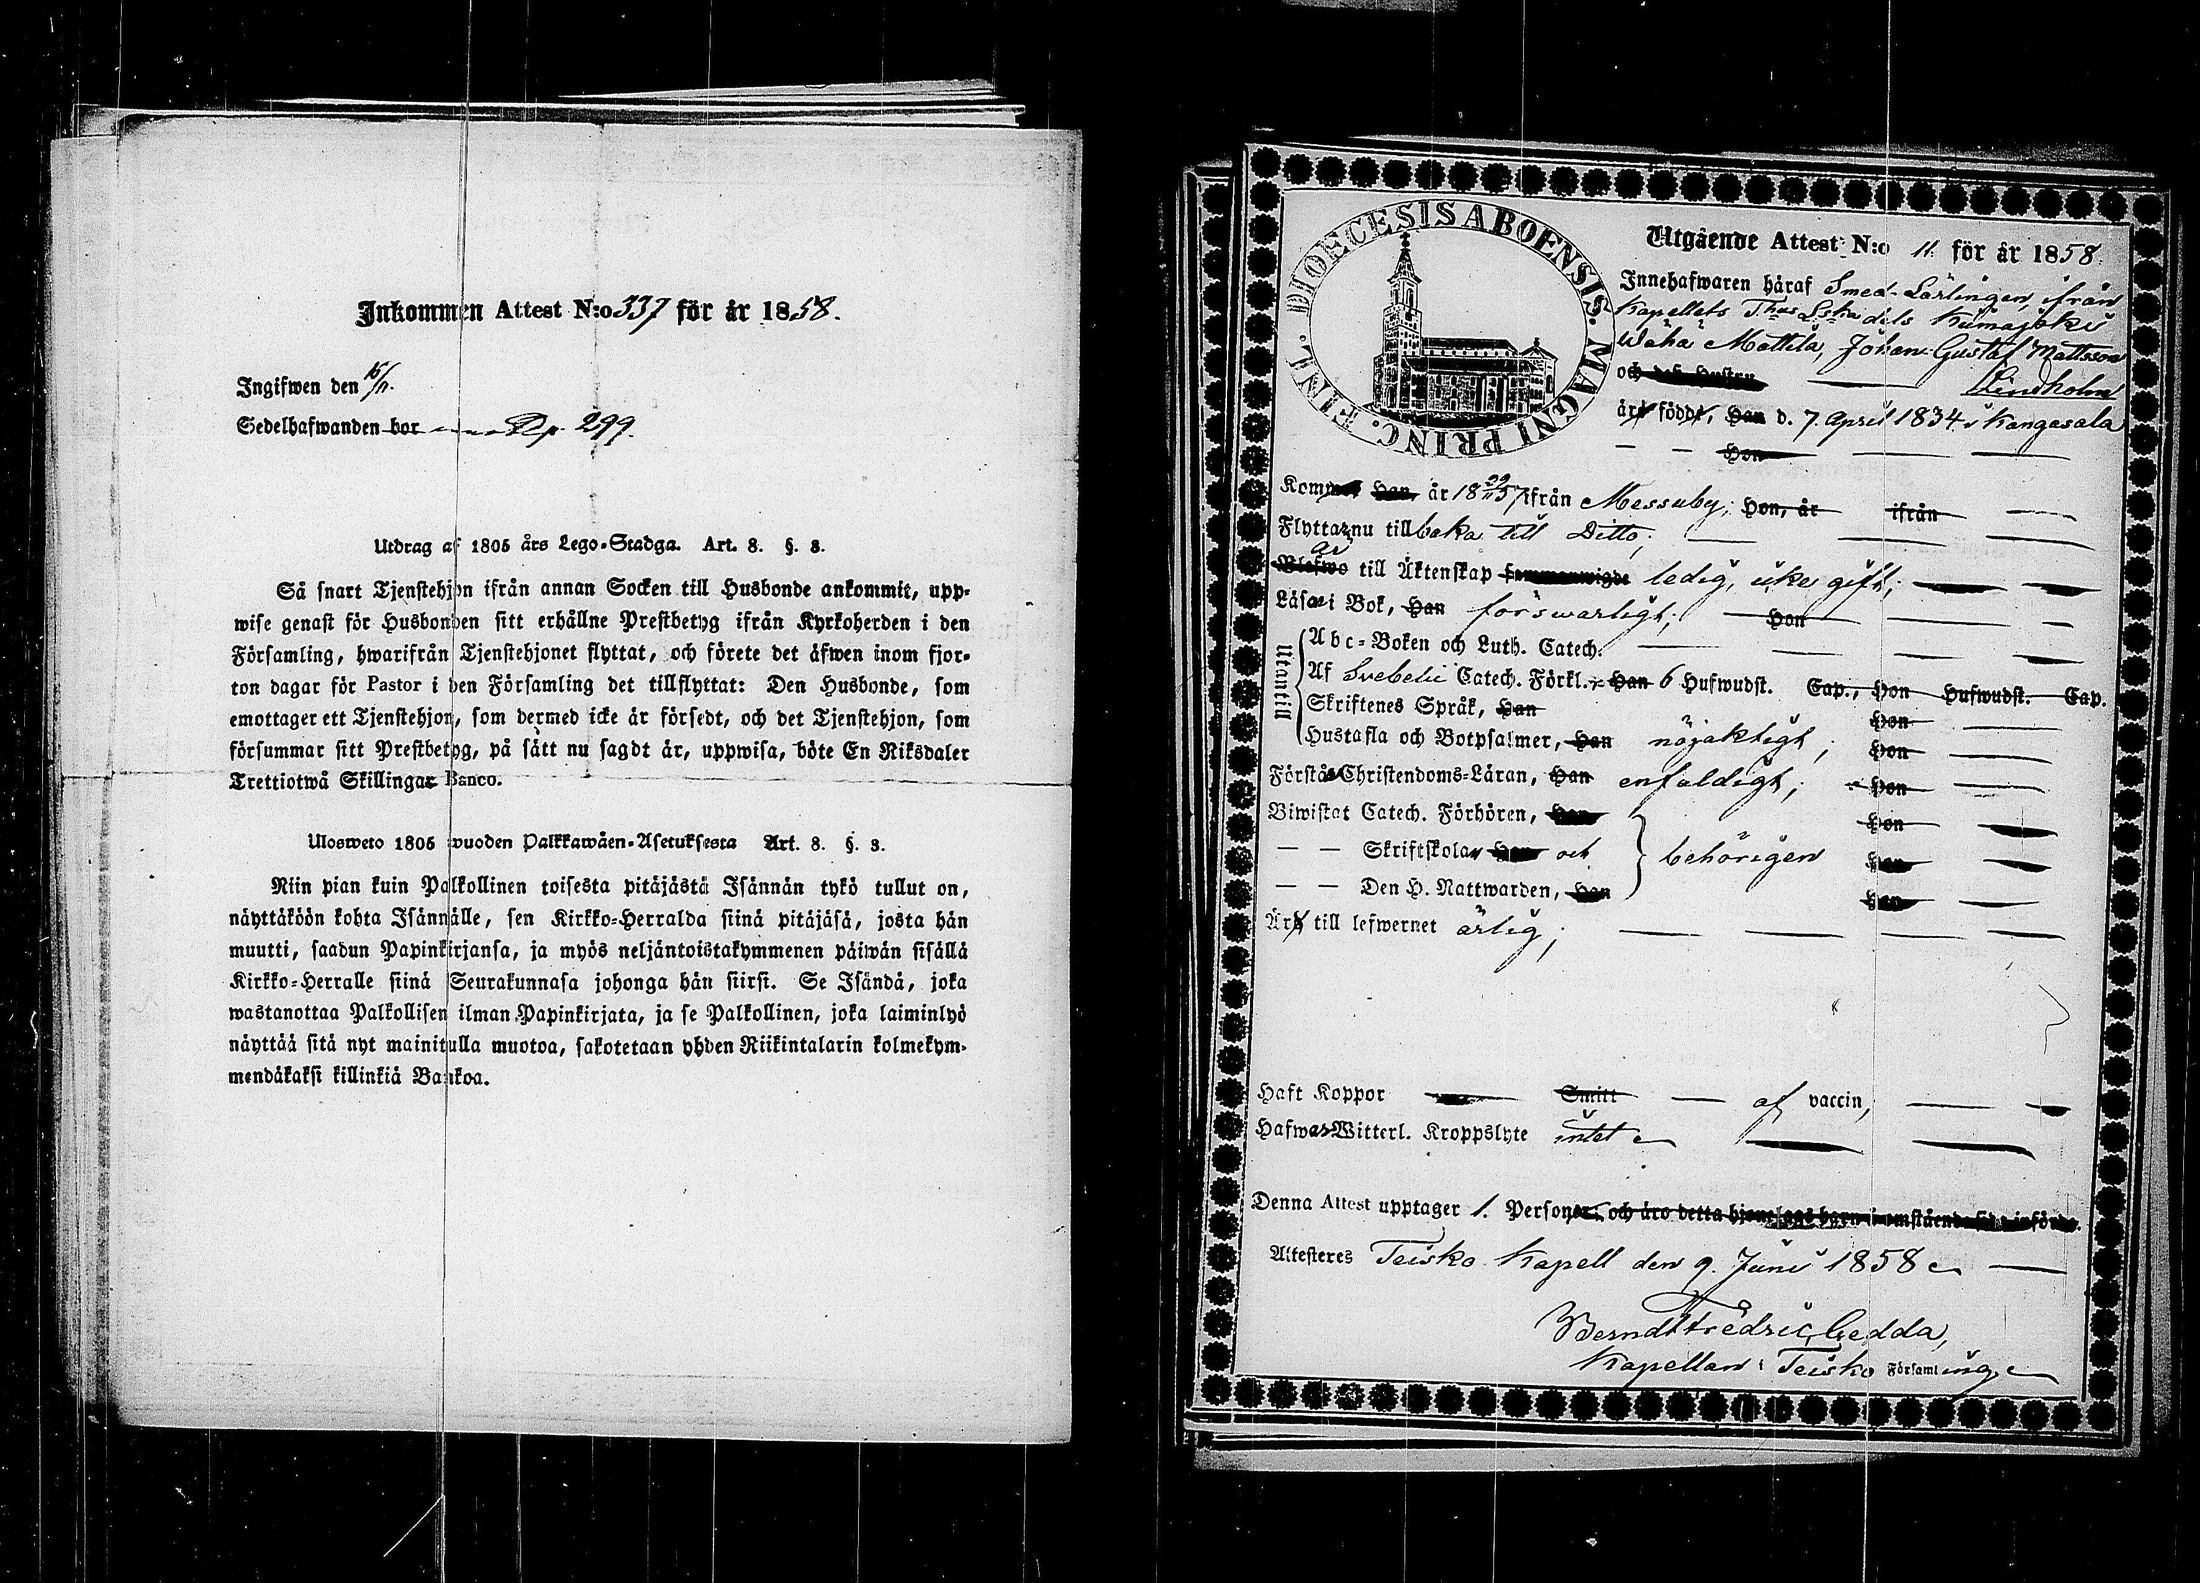 Inkommen Attest N:o 337 för år 1858.
Ingifwen den 15/11.
Sedelhafwanden bor p. 299.
Utdrag af 1805 års Lego-Stadga. Art. 8. §. 3.
Så snart Tjenstehjon ifrån annan Socken till Husbonde ankommit, upp-
wise genast för Husbonden sitt erhållne Prestbetyg ifrån Kyrkoherden i den
Församling, hwarifrån Tjenstehjonet flyttat, och förete det äfwen inom fjor-
ton dagar för Pastor i den Församling det tillflyttat: Den Husbonde, som
emottager ett Tjenstehjon, som dermed icke är försedt, och det Tjenstehjon, som
försummar sitt Prestbetyg, på sätt nu sagdt är, uppwisa, böte En Riksdaler
Trettiotwå Skillingar Banco.
Ulosweto 1805 wuoden Palkkawäen-Asetuksesta Art. 8. §. 3.
Niin pian kuin Palkollinen toisesta pitäjästä Isännän tykö tullut on,
näyttäköön kohta Isännälle, sen Kirkko-Herralda siinä pitäjäsä, josta hän
muutti, saadun Papinkirjansa, ja myös neljäntoistakymmenen päiwän sisällä
Kirkko-Herralle siinä Seurakunnasa johonga hän siirsi. Se Isändä, joka
wastanottaa Palkollisen ilman Papinkirjata, ja se Palkollinen, joka laiminlyö
näyttää sitä nyt mainitulla muotoa, sakotetaan yhden Riikintalarin kolmekym-
mendäkaksi killinkiä Bankoa.
DIOECESIS ABOENSIS. MAGNI PRINC. FINL.
Utgående Attest N:o 11. för år 1858.
Innehafwaren häraf Smed-Lärlingen, ifrån
Kapellets dels Kiimajoki
Wäha Mattila, Johan Gustaf Mattsson
och des hustru Lindholm
är född, Han d. 7. April 1834 i Kangasala
— — Hon
Kom Han, år 18 29/11 57 ifrån Messuby; Hon, år ifrån
Flyttar nu tillbaka till Ditto;
är
Blefwo till Äktenskap sammanwigde ledig, icke gift;
Läsa i Bok, Han förswarligt; Hon
Utantill
Abc-Boken och Luth. Catech.
Af Svebelii Catech. Förkl. Han 6 Hufwudst. Cap., Hon Hufwudst. Cap.
Skriftenes Språk, Han Hon
Hustafla och Botpsalmer, Han nöjaktigt; Hon
Förstår Christendoms-Läran, Han enfaldigt; Hon
Biwistat Catech. Förhören, Han Hon
— — Skriftskolan Han och behörigen Hon
— — Den H. Nattwarden, Han Hon
Är till lefwernet ärlig;
Haft Koppor Smitt af vaccin,
Hafwa Witterl. Kroppslyte intet
Denna Attest upptager 1. Personer, och äro detta hjonelags barn i omstående sida införde.
Attesteres Teisko Kapell den 9. Juni 1858
Berndt Fredric Gedda,
Kapellan i Teisko Församling